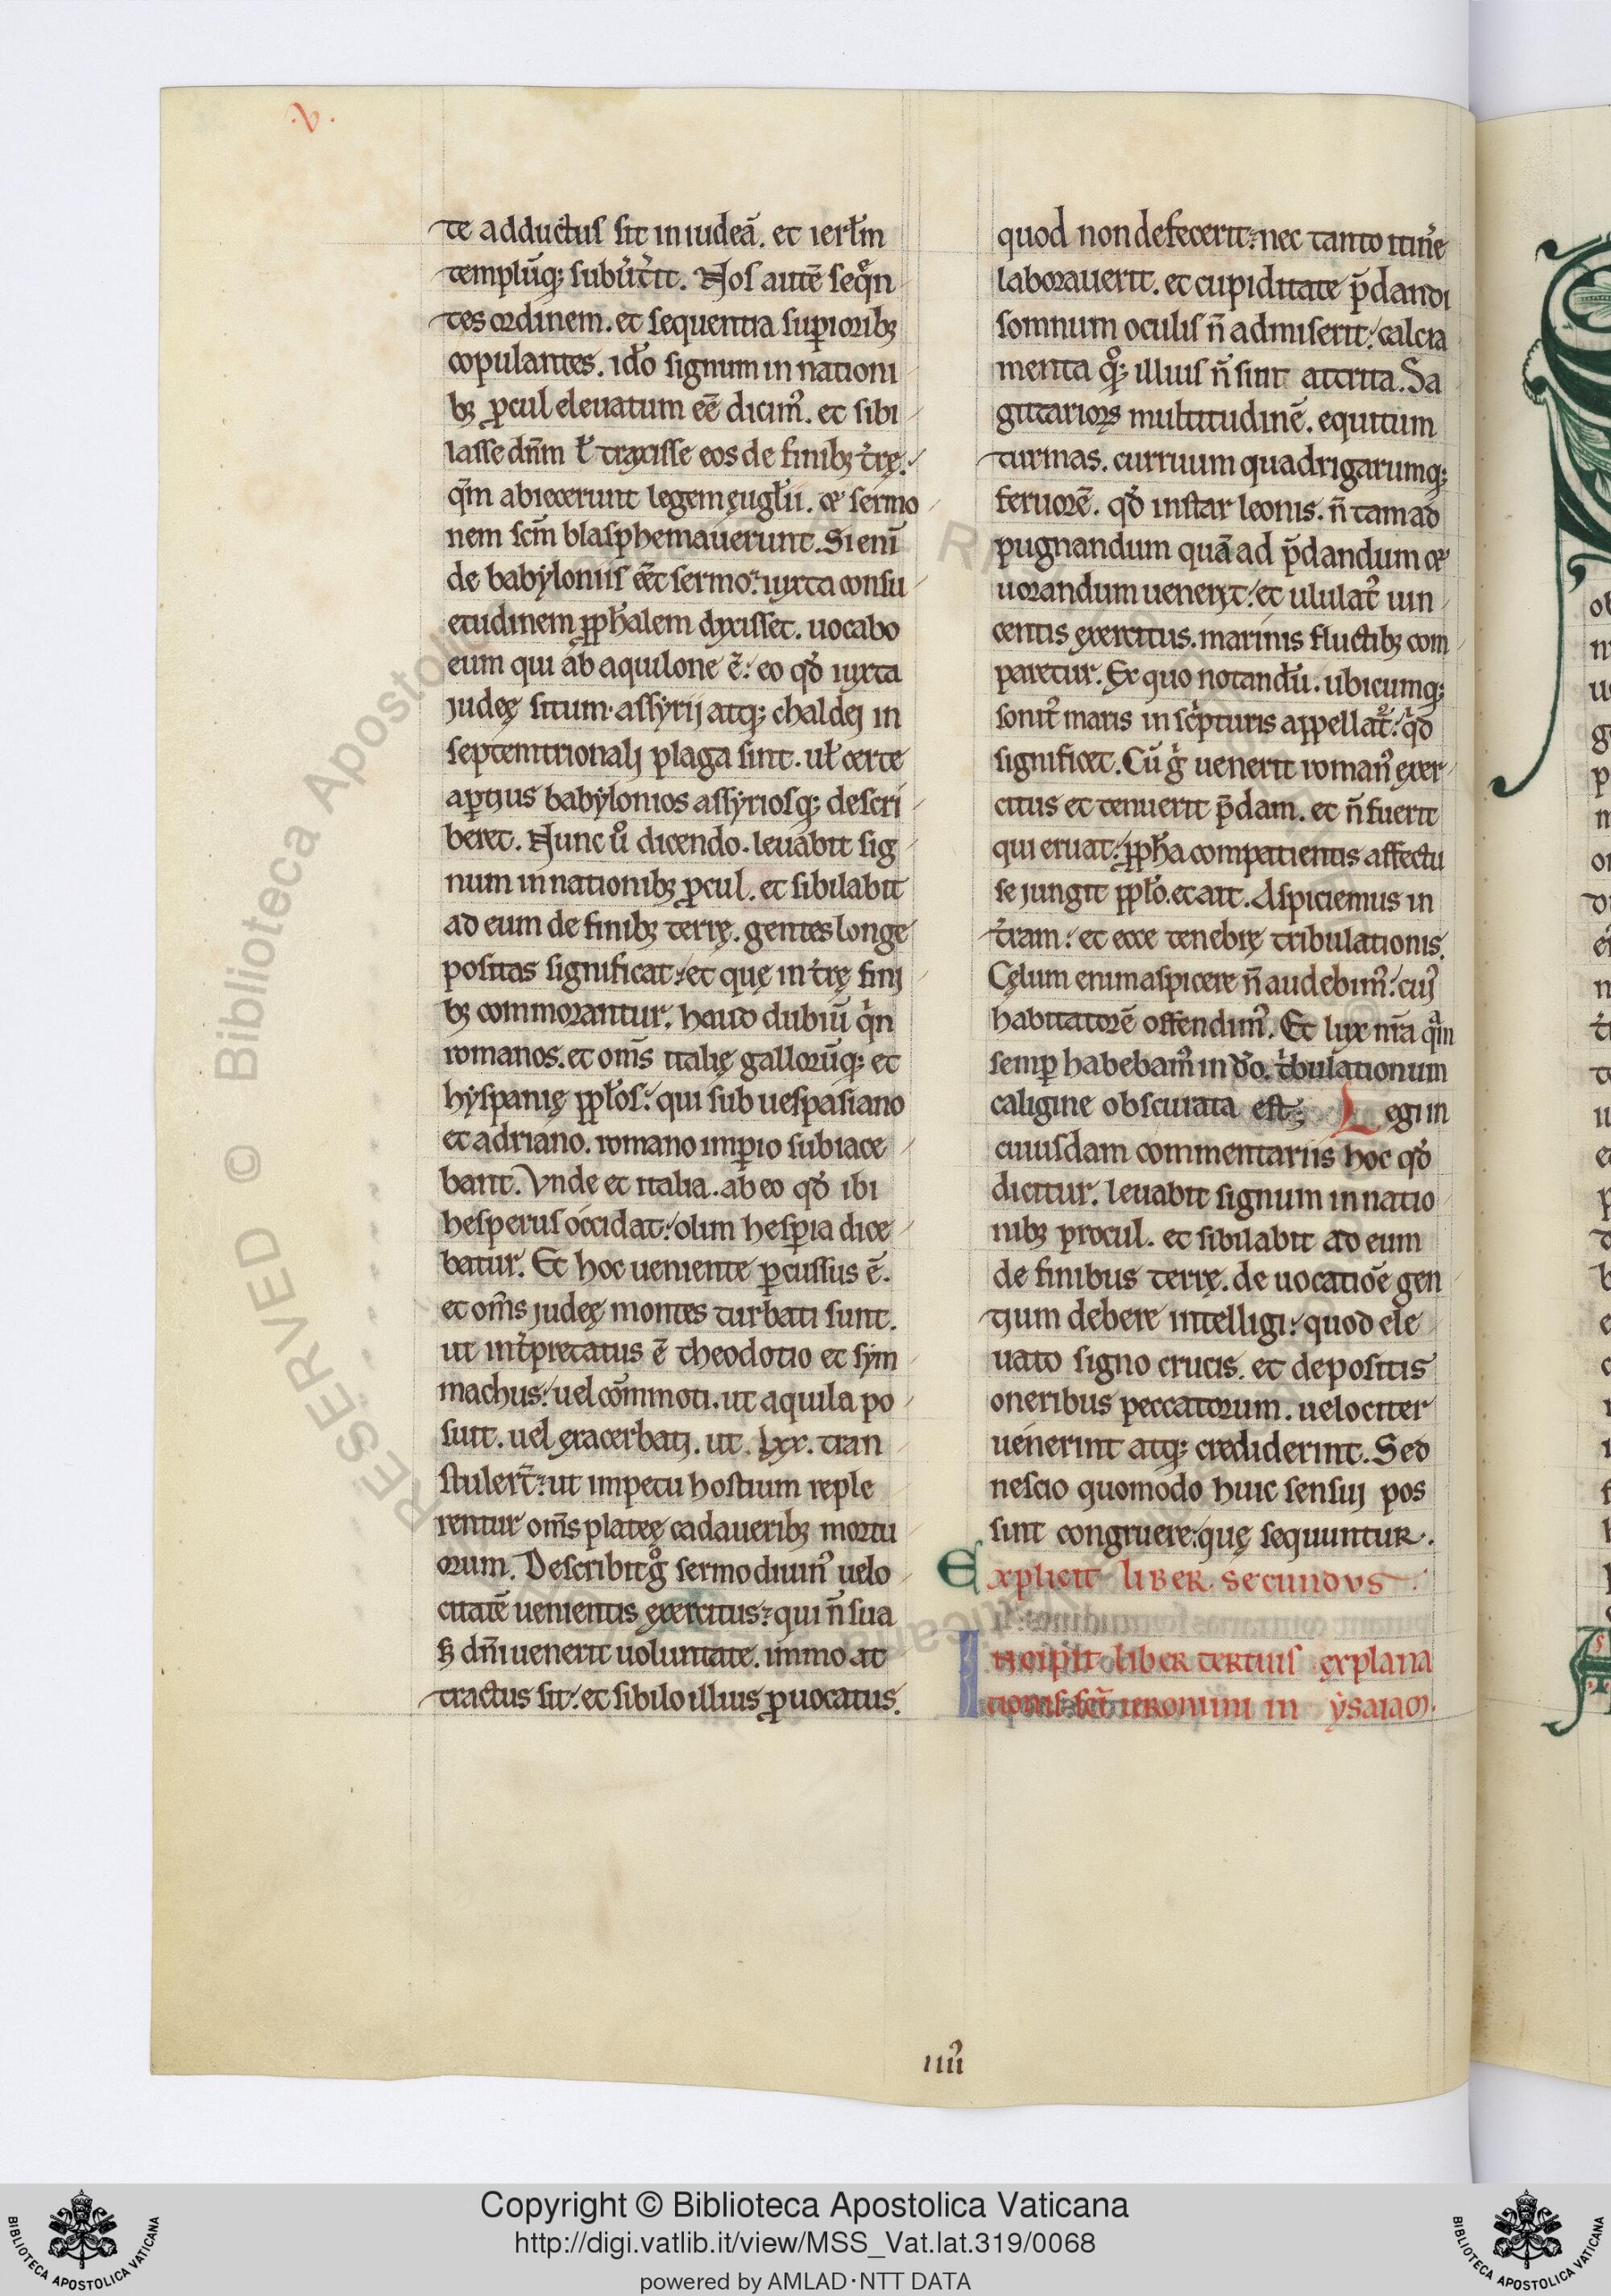 .v.
te adductus sit in iudeā. et ierl̄m
templūq; subu̓t̓it. Nos autē seqͦn
tes ordinem. et sequentia sup̲ioribꝫ
copulantes. id̓o signum in nationi
bꝫ ꝓcul eleuatum eē dicimꝰ. et sibi
lasse dn̄m ł traxisse eos de finibꝫ t̓rę:
qm̄ abiecerunt legem ęugl̓ii. et sermo
nem scm̄ blasphemauerunt. Si eni̅
de babyloniis eēt sermo: iuxta consu
etudinem ꝓph̓alem dixisset. uocabo
eum qui ab aquilone ē: eo qd̓ iuxta
iudeę situm assyrij atq; chaldei in
septemtrionali plaga sint. uł certe
ap̲tius babylonios assyriosq; descri
beret. Nunc uͦ dicendo. leuabit sig
num in nationibꝫ ꝓcul. et sibilabit
ad eum de finibꝫ terrę. gentes longe
positas significat: et que̜ in t̓rę fini
bꝫ commorantur. haud dubiū qͥn
romanos. et om̄s italię gallorūq; et
hyspanię ppl̓os: qui sub uespasiano
et adriano. romano imp̲io subiace
bant. Vnde et italia. ab eo qd̓ ibi
hesperus occidat: olim hesp̲ia dice
batur. Et hoc ueniente p̲cussus ē.
et om̄s iudeę montes turbati sunt.
ut int̓pretatus ē theodotio et sym
machus: uel cōmmoti. ut aquila po
suit. uel exacerbati. ut .lxx. tran
stuler̄t: ut impetu hostium reple
rentur om̄s plateę cadaueribꝫ mortu
orum. Describit gͦ sermo diuinꝰ uelo
citatē uenientis exercitus: qui n̄ sua
sꝫ dn̄i uenerit uoluntate. immo at
tractus sit: et sibilo illius ꝓuocatus.
quod non defecerit: nec tanto itin̓e
laborauerit. et cupiditate p̄dandi
somnum oculis n̄ admiserit: calcia
menta qͦ; illius n̄ sint attrita. Sa
gittarioꝝ multitudinē. equitum
turmas. curruum quadrigarumq;
feruorē. qd̓ instar leonis. n̄ tam ad
pugnandum quā ad p̄dandum et
uorandum uenerit: et ululatꝰ uin
centis exercitus. marinis fluctibꝫ com
paretur. Ex quo notand̓u. ubicumq;
sonitꝰ maris in scͥpturis appellatᷣ: qͥd
significet. Cū gͥ uenerit romanꝰ exer
citus et tenuerit p̄dam. et n̄ fuerit
qui eruat: ꝓph̓a compatientis affectu
se iungit ppl̓o. et ait. Aspiciemus in
t̓ram: et ecce tenebrę tribulationis.
Cęlum enim aspicere n̄ audebimꝰ: cuiꝰ
habitatorē offendimꝰ. Et lux nr̄a qͣm
semp̲ habebamꝰ in d̓o. tͥbulationum
caligine obscurata est; Legi in
cuiusdam commentariis hoc qd̓
dicitur. leuabit signum in natio
nibꝫ procul. et sibilabit ad eum
de finibus terrę. de uocatiōe gen
tium debere intelligi: quod ele
uato signo crucis. et depositis
oneribus peccatorum. uelociter
uenerint atq; crediderint. Sed
nescio quomodo huic sensui pos
sint congruere: quę sequuntur.
Explicit liber secundus
Incipit liber tertius explana
tionis scī ieronimi in ysaiam.
iiiiꝰ
Copyright © Biblioteca Apostolica Vaticana
http://digi.vatlib.it/view/MSS_Vat.lat.319/0068
powered by AMLAD·NTT DATA
BIBLIOTECA APOSTOLICA VATICANA
BIBLIOTECA APOSTOLICA VATICANA